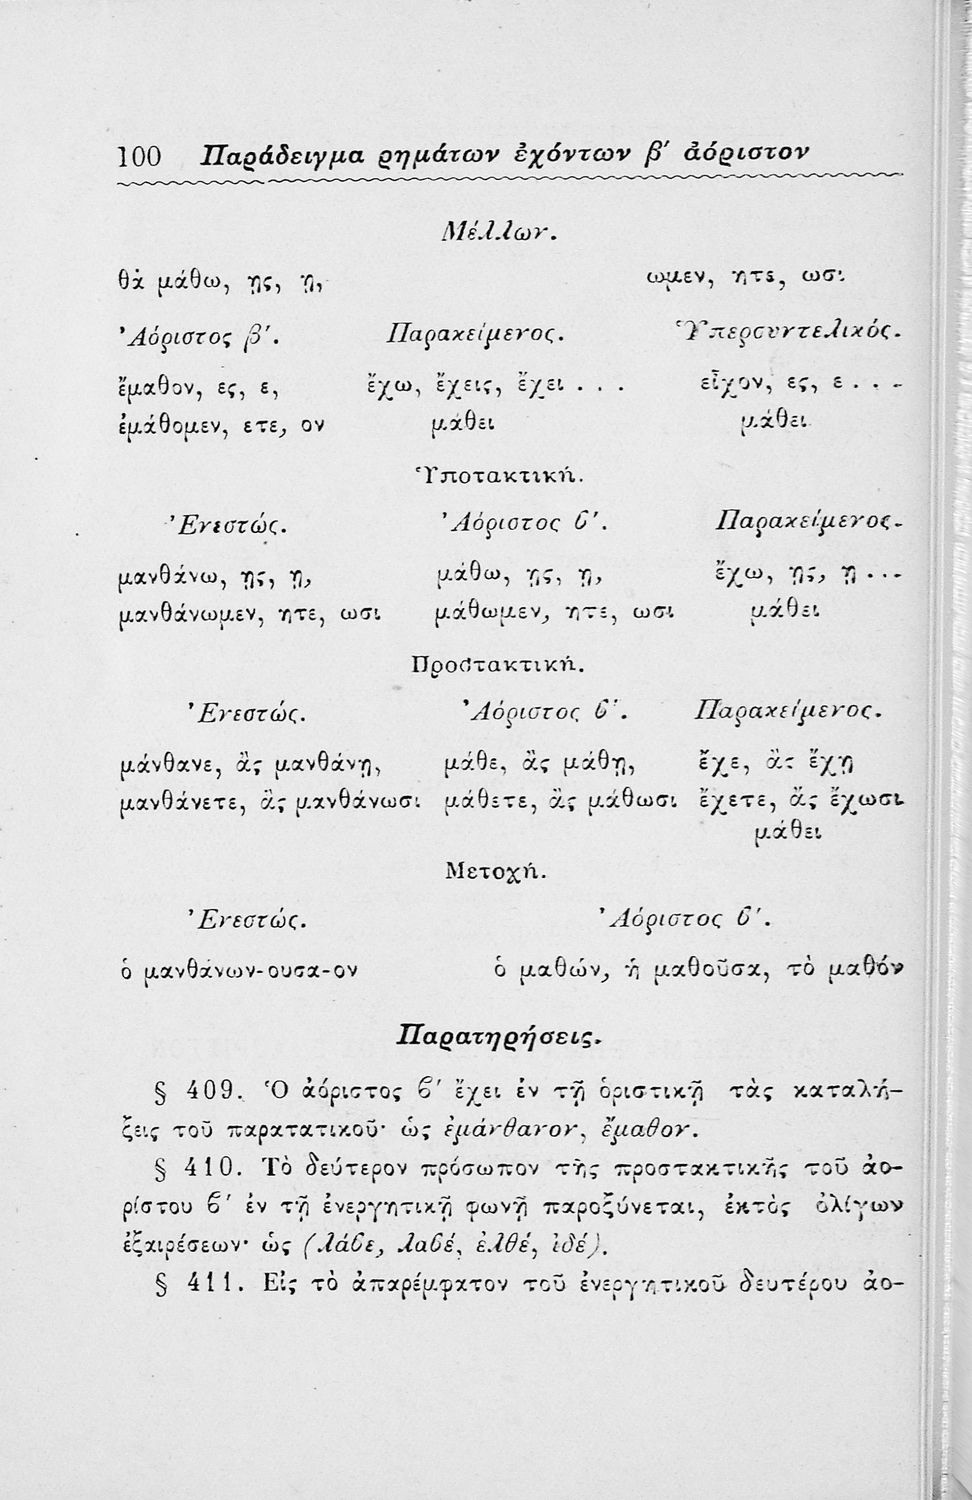 100 Παράδειγμα ρημάτων ἐχόντων β′ ἀόριστον
Μέλλων.
θὰ μάθω, ῃς, ῃ, ωμεν, ητε, ωσι
Ἀόριστος β′. Παρακείμενος. Ὑπερσυντελικός.
ἔμαθον, ες, ε, ἔχω, ἔχεις, ἔχει . . . εἶχον, ες, ε . . .
ἐμάθομεν, ετε, ον μάθει μάθει
Ὑποτακτική.
Ἐνεστώς. Ἀόριστος ϐ′. Παρακείμενος.
μανθάνω, ῃς, ῃ, μάθω, ῃς, ῃ, ἔχω, ῃς, ῃ . . .
μανθάνωμεν, ητε, ωσι μάθωμεν, ητε, ωσι μάθει
Προστακτική.
Ἐνεστώς. Ἀόριστος ϐ′. Παρακείμενος.
μάνθανε, ἂς μανθάνῃ, μάθε, ἂς μάθῃ, ἔχε, ἂς ἔχῃ
μανθάνετε, ἂς μανθάνωσι μάθετε, ἂς μάθωσι ἔχετε, ἂς ἔχωσι
μάθει
Μετοχή.
Ἐνεστώς. Ἀόριστος ϐ′.
ὁ μανθάνων-ουσα-ον ὁ μαθών, ἡ μαθοῦσα, τὸ μαθόν
Παρατηρήσεις.
§ 409. Ὁ ἀόριστος ϐ′ ἔχει ἐν τῇ ὁριστικῇ τὰς καταλή-
ξεις τοῦ παρατατικοῦ· ὡς ἐμάνθανον, ἔμαθον.
§ 410. Τὸ δεύτερον πρόσωπον τῆς προστακτικῆς τοῦ ἀο-
ρίστου ϐ′ ἐν τῇ ἐνεργητικῇ φωνῇ παροξύνεται, ἐκτὸς ὀλίγων
ἐξαιρέσεων· ὡς (λάϐε, λαϐέ, ἐλθέ, ἰδέ).
§ 411. Εἰς τὸ ἀπαρέμφατον τοῦ ἐνεργητικοῦ δευτέρου ἀο-